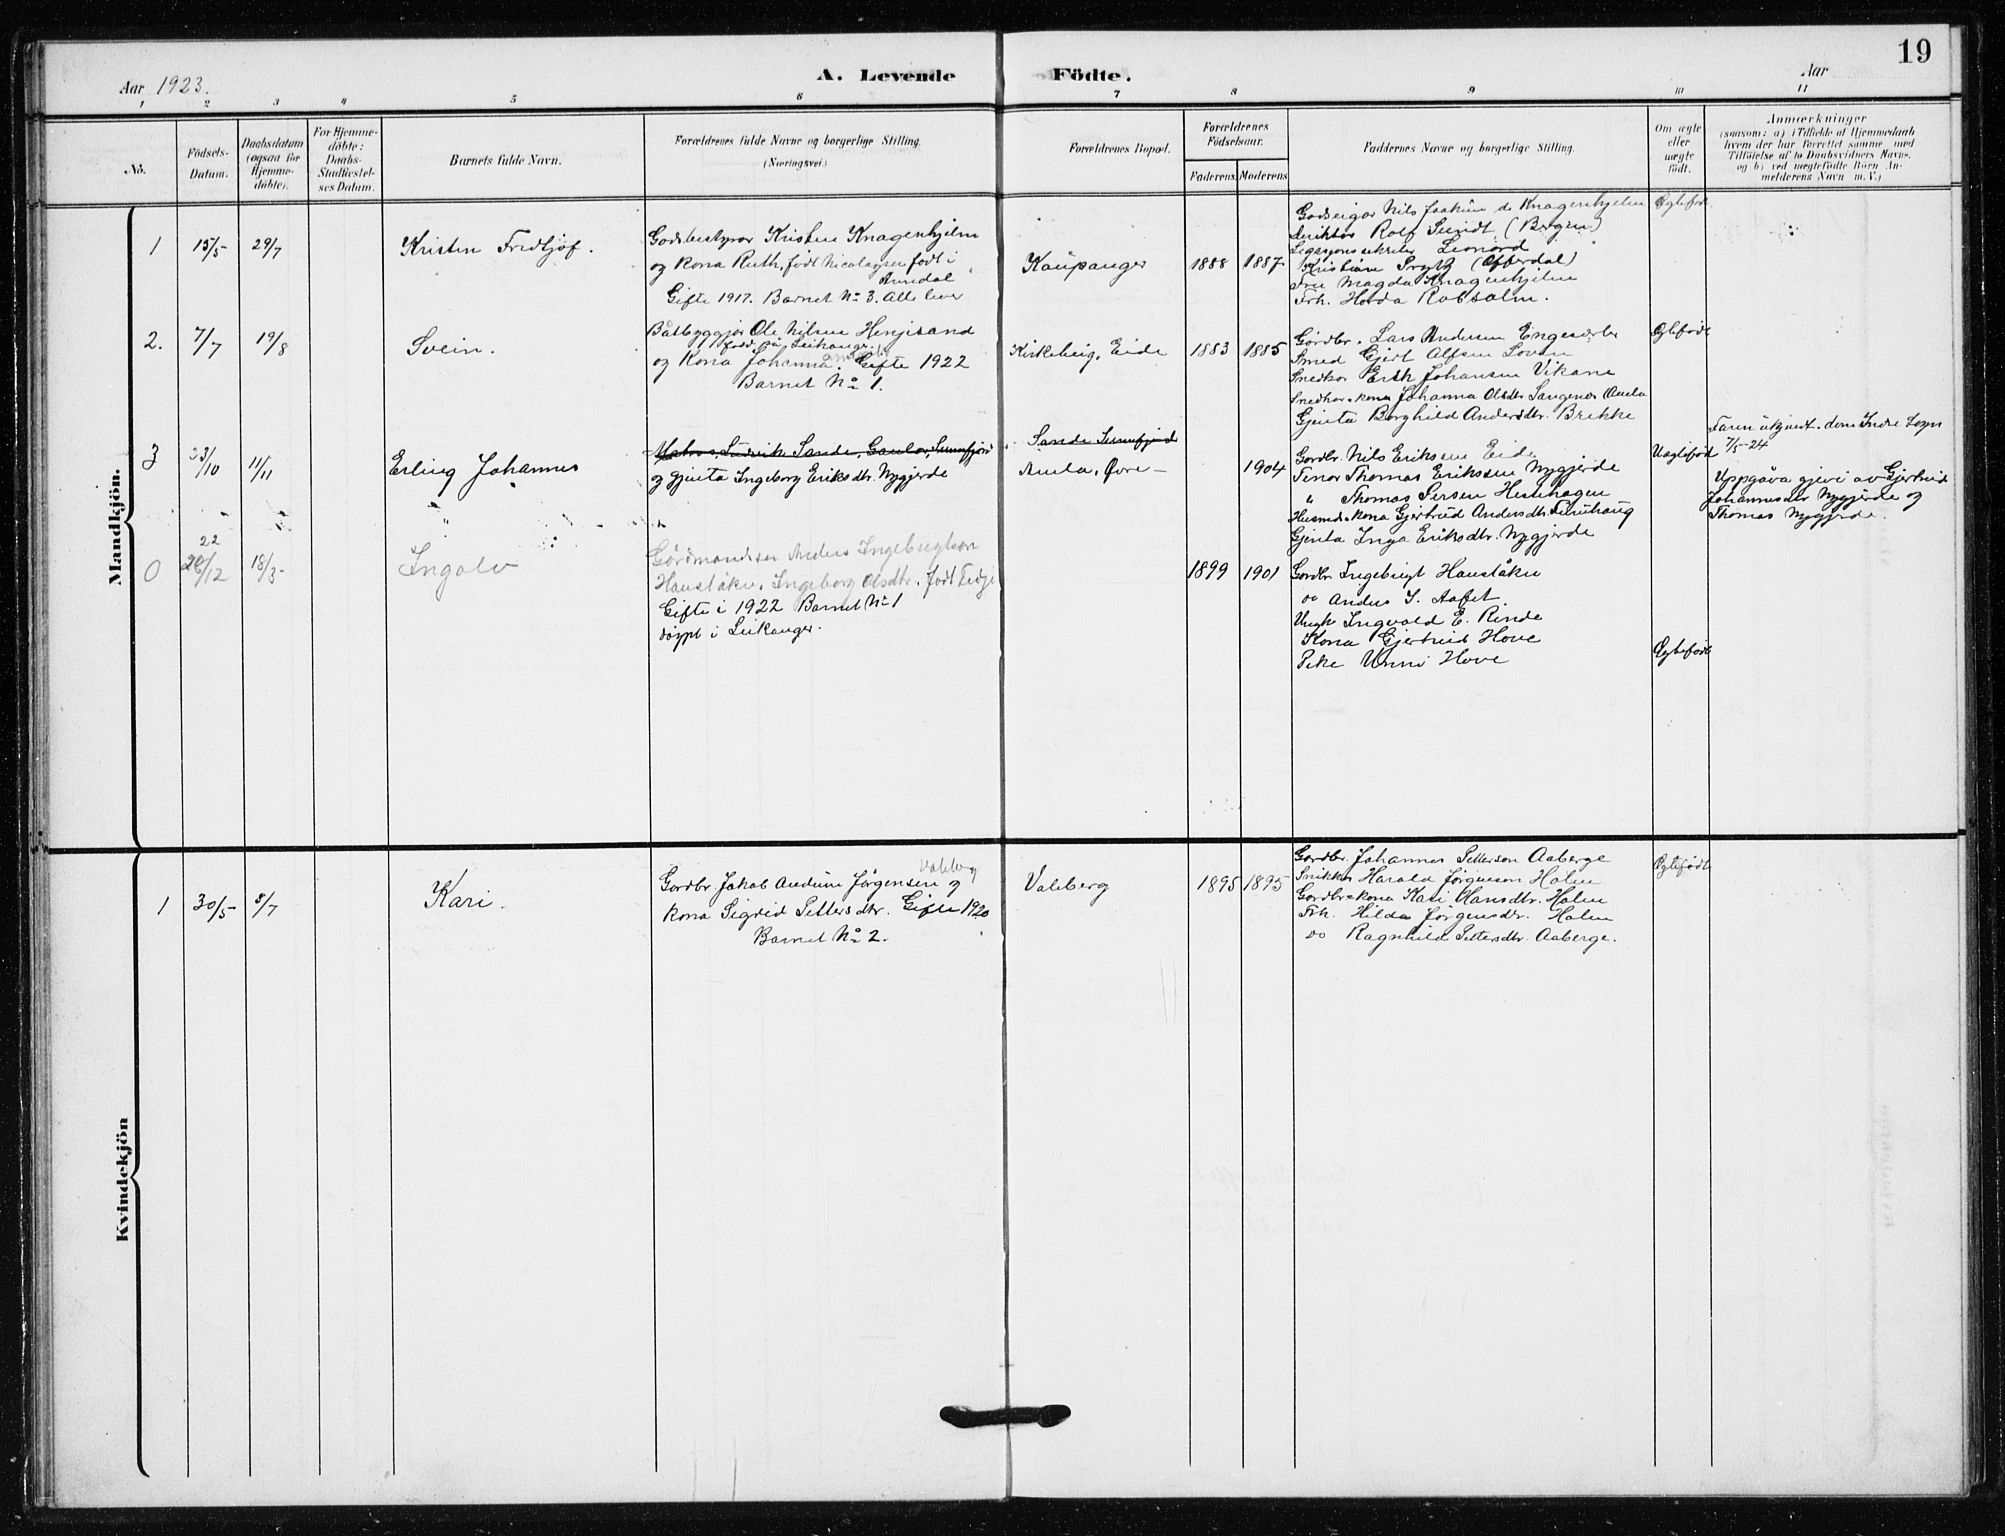 19
Aar 1923. A. Levende Födte. Aar
1 2 3 4 5 6 7 8 9 10 11
No.
Födsels-
Datum.
Daabsdatum
(ogsaa for
Hjemme-
döbte).
For Hjemme-
döbte:
Daabs-
Stadfæstel-
ses Datum.
Barnets fulde Navn.
Forældrenes fulde Navne og borgerlige Stilling.
(Næringsvei.)
Forældrenes Bopæl.
Forældrenes
Födselsaar.
Faderens. Moderens
Faddernes Navne og borgerlige Stilling.
Om ægte
eller
uægte
födt.
Anmærkninger
(saasom: a) i Tilfælde af Hjemmedaab
hvem der har forrettet samme med
Tilföielse af to Daabsvidners Navne.
og b) ved uægtefödte Börn An-
melderens Navn m. V.)
Mandkjön.
1 15/5 29/7
Kristen Fridtjof.
Godsbestyrar Kristen Knagenhjelm
og kona Ruth, født Nicolaysen født i
Arendal
Gifte 1917. Barnet No 3. Alle lever
Kaupanger
1888 1887
Godseigar Nils Joakim de Knagenhjelm
Direktør Rolf Sundt (Bergen)
Legasjonssekretær Leonord
Kristian Prytz (Offerdal)
Fru Magda Knagenhjelm
Frk. Horda Robsalm.
Egtefød
2. 7/7 19/8
Svein.
Båtbyggjar Ole Nilsen Henjesand
fødd på Leikanger
og Kona Johanna. Gifte 1922
Barnet No 1.
Kirkebeig, Eide
1883 1885
Gårdbr. Lars Andersen Engesæter
Smed Gjert Alfsen Loven
Snedkar Erik Johansen Vikane
Snedkar-kona Johanna Olsdtr. Sangenes Amla
Gjenta Borghild Andersdtr. Brekke
Egtefødt
3 23/10 11/11
Erling Johannes
Matros Ludvik Sande, Gaular, Sunnfjord
og gjenta Ingeborg Eriksdtr. Nygjerde
Sande Sunnfjord
Amla, Øvre —
1904
Gardbr. Nils Eriksen Eide
Tenar Thomas Eriksen Nygjerde
" Thomas Persen Hestehagen
Husmds-kona Gjertrud Andersdtr. Furuhaug
Gjenta Inga Eriksdtr. Nygjerde
Uegtefødt
Faren ukjent. dom Indre Sogn
7/5-24
Uppgåva gjevi av Gjertrud
Johannesdtr Nygjerde og
Thomas Nygjerde.
0 22
28/12 18/3
Ingolv
Gårdmandssøn Anders Ingebrigtson
Hauståker, Ingeborg Olsdtr. født Eidje
Gifte i 1922 Barnet No 1
døypt i Leikanger.
1899 1901
Gardbr. Ingebrigt Hauståker
do Anders I. Aafet
Ungk Ingvald E. Rinde
Kona Gjertrud Hove
Pike Unni Hove
Egtefødt
Kvindekjön
1 30/5 8/7
Kari.
Valeberg
Gardbr. Jakob Andrias Jørgensen og
kona Sigrid Pettersdtr. Gifte 1920
Barnet No 2.
Valeberg
1895 1895
Gardbr. Johannes Petterson Aaberge
Snikkar Harald Jørgenson Holen
Gardbr-kona Kari Hansdtr. Holen
Frk. Hilda Jørgensdtr. Holen
do Ragnhild Pettersdtr. Aaberge.
Egtefødt